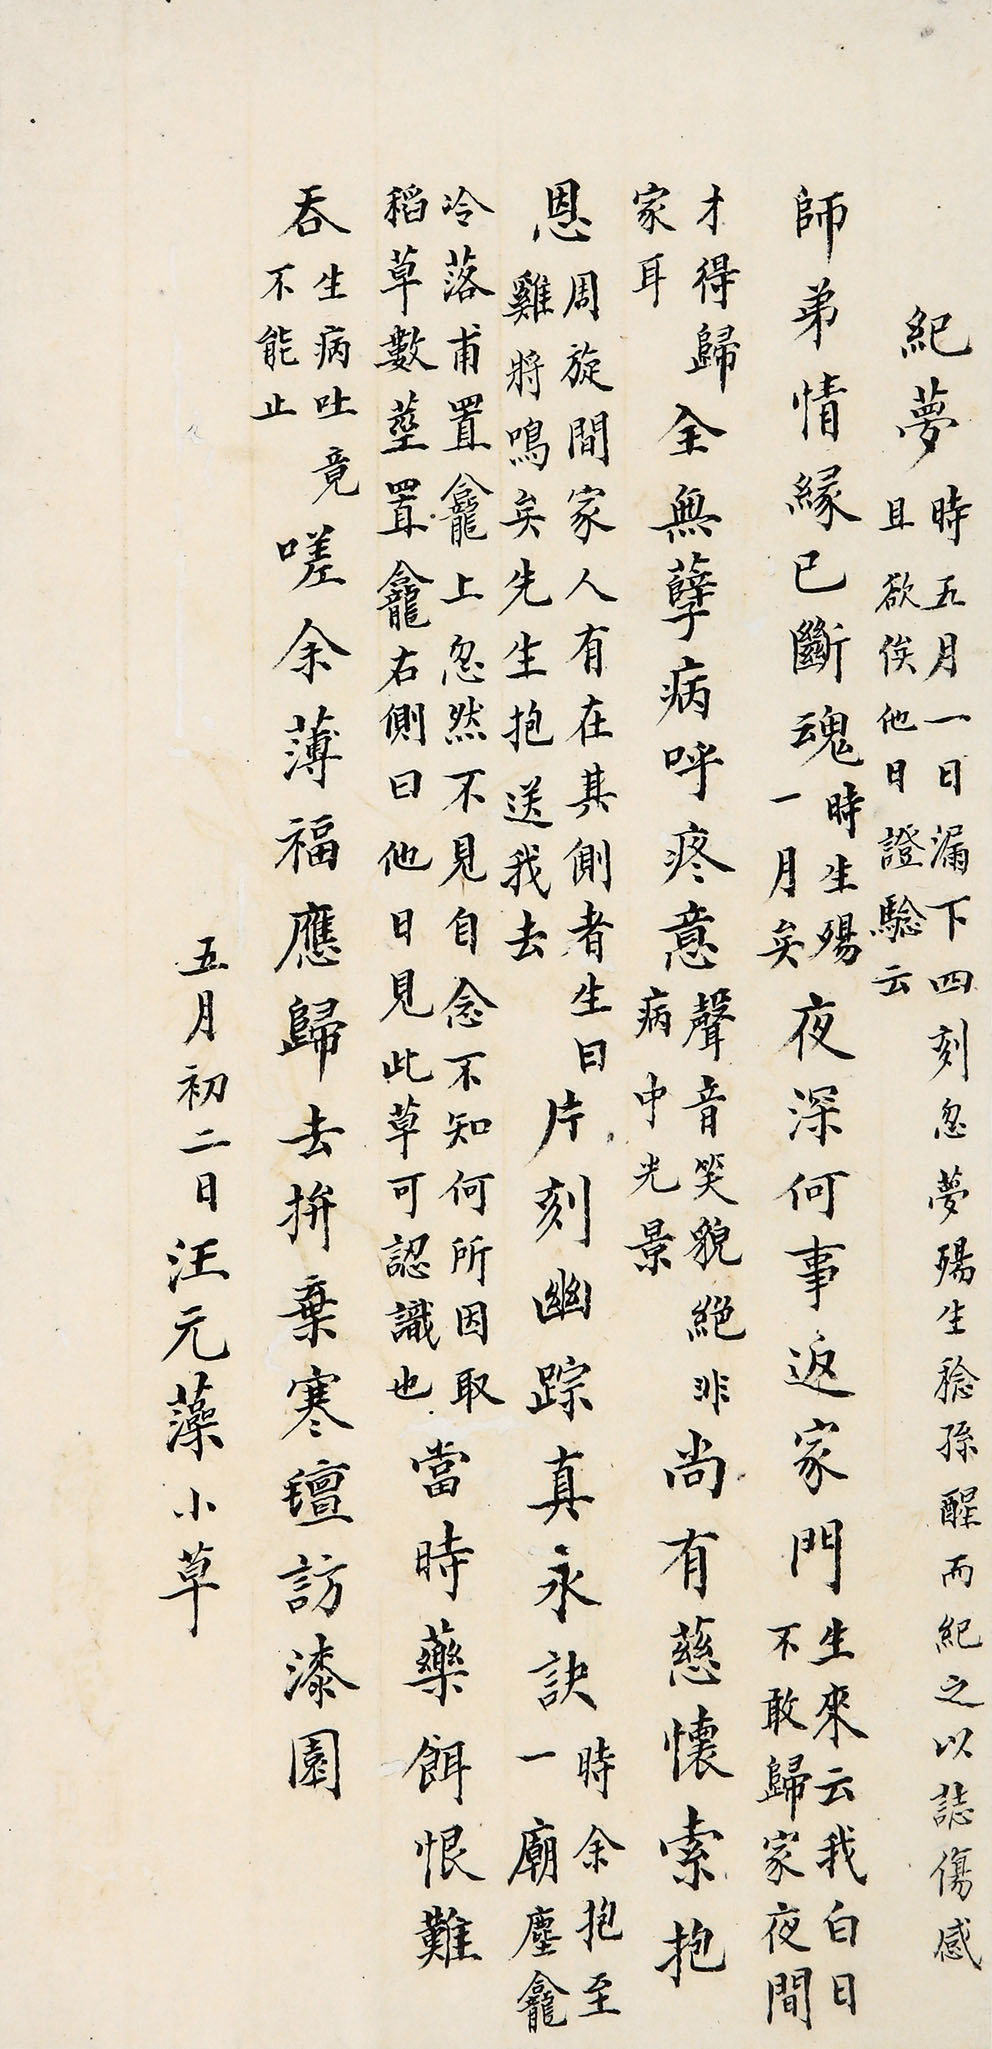 紀夢 時五月一日漏下四刻忽夢殤生稔孫醒而紀之以誌傷感
且欲俟他日證驗云
師弟情緣已斷魂 時生殤
一月矣 夜深何事返家門 生來云我白日
不敢歸家夜間
才得歸
家耳 全無孽病呼疼意 聲音笑貌絕非
病中光景 尚有慈懷索抱
恩 周旋間家人有在其側者生曰
雞將鳴矣先生抱送我去 片刻幽踪真永訣 時余抱至
一廟塵龕
冷落甫置龕上忽然不見自念不知何所因取
稻草數莖置龕右側曰他日見此草可認識也 當時藥餌恨難
吞 生病吐竟
不能止 嗟余薄福應歸去拚棄寒氊訪漆園
五月初二日汪元藻小草